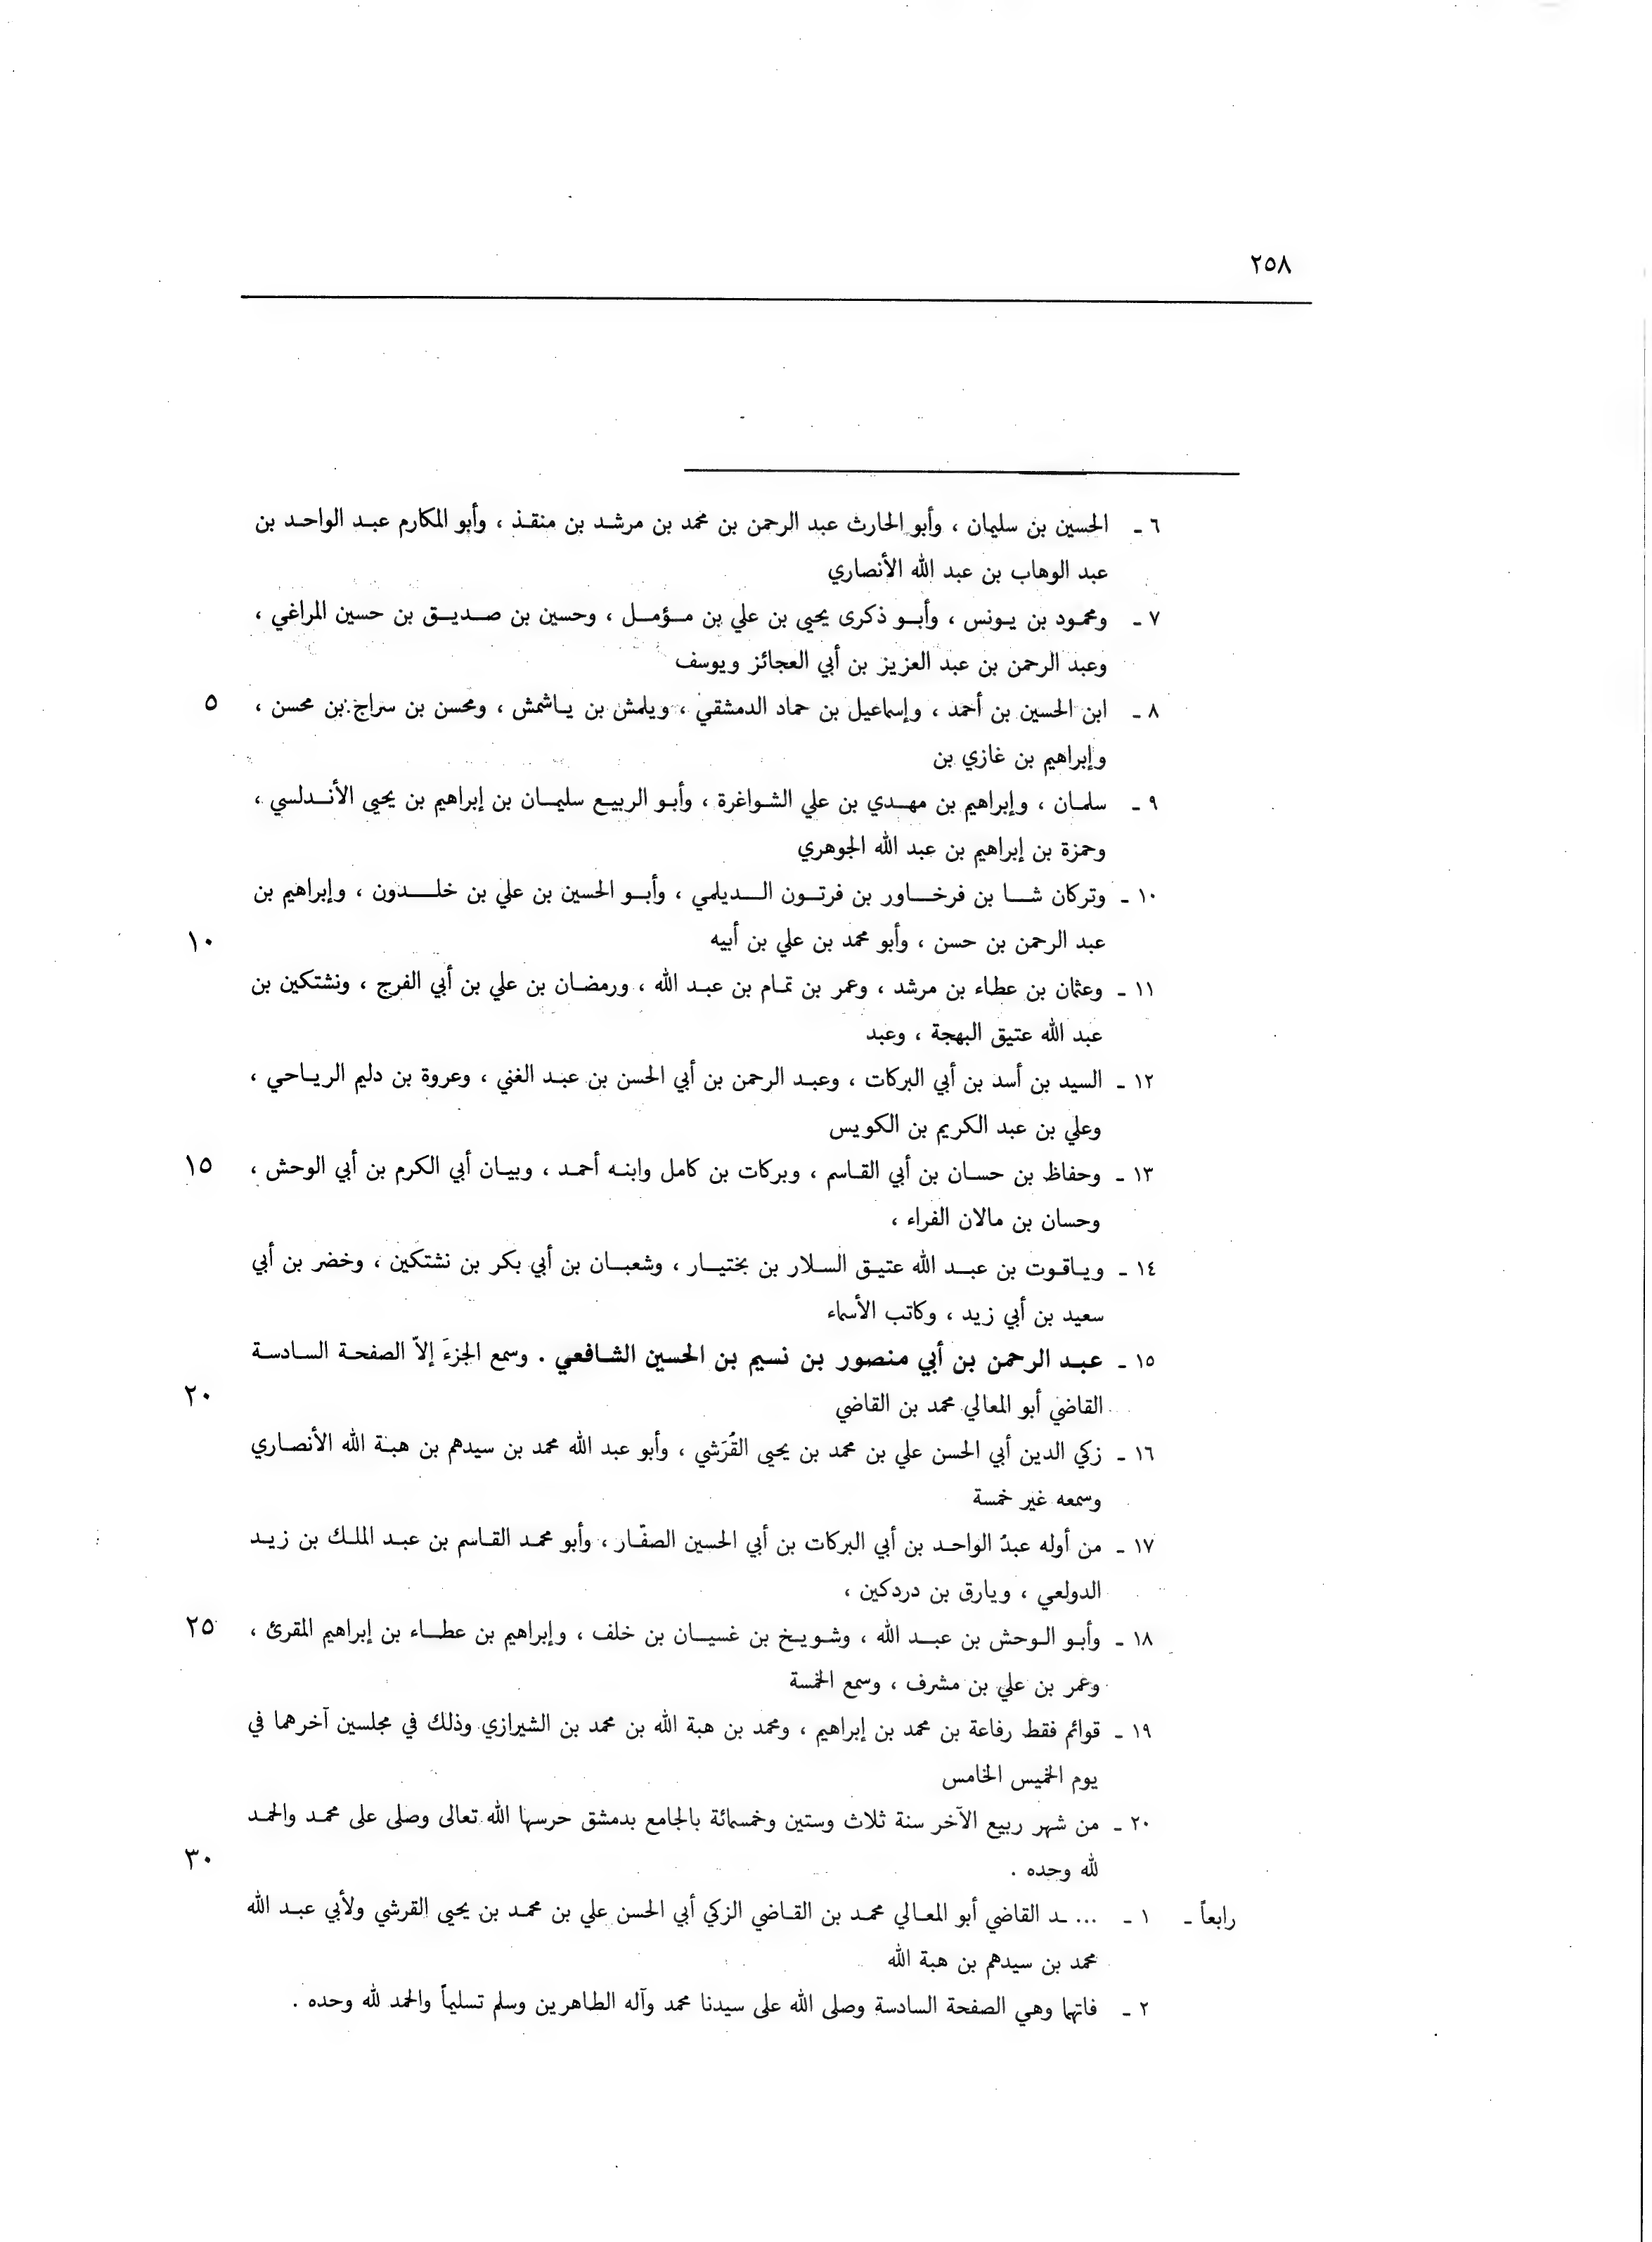 ٢٥٨
٦ ـ الحسين بن سليمان ، وأبو الحارث عبد الرحمن بن محمد بن مرشد بن منقذ ، وأبو المكارم عبد الواحد بن
عبد الوهاب بن عبد الله الأنصاري
٧ ـ ومحمود بن يونس ، وأبو ذكرى يحيى بن علي بن مؤمل ، وحسين بن صديق بن حسين المراغي ،
وعبد الرحمن بن عبد العزيز بن أبي العجائز ويوسف
٨ ـ ابن الحسين بن أحمد ، وإسماعيل بن حماد الدمشقي ، ويلمش بن ياشمش ، ومحسن بن سراج بن محسن ، ٥
وإبراهيم بن غازي بن
٩ ـ سلمان ، وإبراهيم بن مهدي بن علي الشواغرة ، وأبو الربيع سليمان بن إبراهيم بن يحيى الأندلسي ،
وحمزة بن إبراهيم بن عبد الله الجوهري
١٠ ـ وتركان شا بن فرخاور بن فرتون الديلمي ، وأبو الحسين بن علي بن خلدون ، وإبراهيم بن
عبد الرحمن بن حسن ، وأبو محمد بن علي بن أبيه ١٠
١١ ـ وعثمان بن عطاء بن مرشد ، وعمر بن تمام بن عبد الله ، ورمضان بن علي بن أبي الفرج ، ونشتكين بن
عبد الله عتيق البهجة ، وعبد
١٢ ـ السيد بن أسد بن أبي البركات ، وعبد الرحمن بن أبي الحسن بن عبد الغني ، وعروة بن دليم الرياحي ،
وعلي بن عبد الكريم بن الكويس
١٣ ـ وحفاظ بن حسان بن أبي القاسم ، وبركات بن كامل وابنه أحمد ، وبيان أبي الكرم بن أبي الوحش ، ١٥
وحسان بن مالان الفراء ،
١٤ ـ وياقوت بن عبد الله عتيق السلار بن بختيار ، وشعبان بن أبي بكر بن نشتكين ، وخضر بن أبي
سعيد بن أبي زيد ، وكاتب الأسماء
١٥ ـ عبد الرحمن بن أبي منصور بن نسيم بن الحسين الشافعي . وسمع الجزءَ إلاّ الصفحة السادسة
القاضي أبو المعالي محمد بن القاضي ٢٠
١٦ ـ زكي الدين أبي الحسن علي بن محمد بن يحيى القُرَشي ، وأبو عبد الله محمد بن سيدهم بن هبة الله الأنصاري
وسمعه غير خمسة
١٧ ـ من أوله عبدُ الواحد بن أبي البركات بن أبي الحسين الصفّار ، وأبو محمد القاسم بن عبد الملك بن زيد
الدولعي ، ويارق بن دردكين ،
١٨ ـ وأبو الوحش بن عبد الله ، وشويخ بن غسيان بن خلف ، وإبراهيم بن عطاء بن إبراهيم المقرئ ، ٢٥
وعمر بن علي بن مشرف ، وسمع الخمسة
١٩ ـ قوائم فقط رفاعة بن محمد بن إبراهيم ، ومحمد بن هبة الله بن محمد بن الشيرازي وذلك في مجلسين آخرهما في
يوم الخميس الخامس
٢٠ ـ من شهر ربيع الآخر سنة ثلاث وستين وخمسمائة بالجامع بدمشق حرسها الله تعالى وصلى على محمد والحمد
لله وحده . ٣٠
رابعاً ـ ١ ـ ... ـد القاضي أبو المعالي محمد بن القاضي الزكي أبي الحسن علي بن محمد بن يحيى القرشي ولأبي عبد الله
محمد بن سيدهم بن هبة الله
٢ ـ فاتهما وهي الصفحة السادسة وصلى الله على سيدنا محمد وآله الطاهرين وسلم تسليماً والحمد لله وحده .